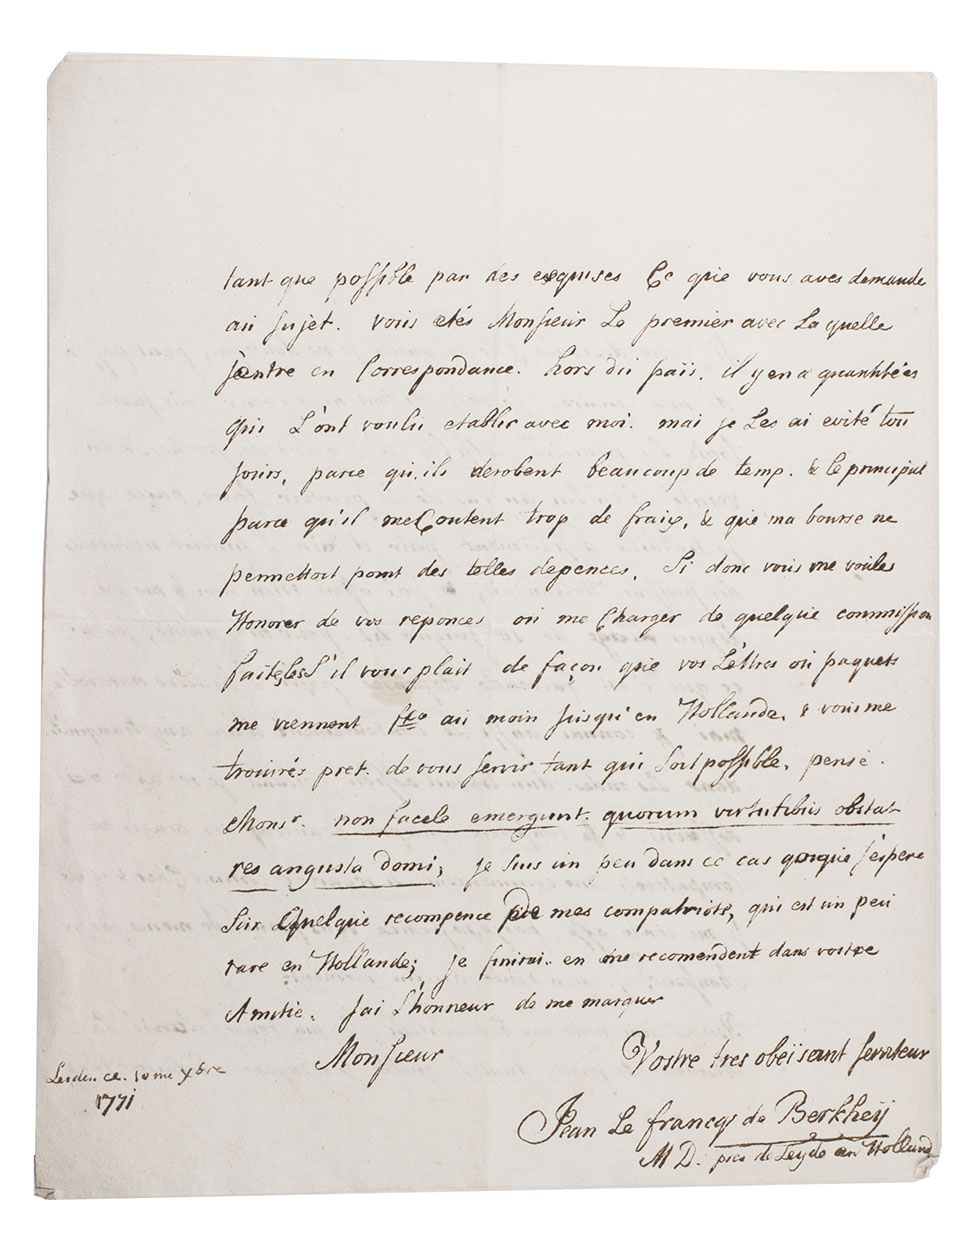 tant que possible par des exquises Ce que vous aves demande
au sujet. vous etés Monsieur Le premier avec Laquelle
j'entre en Correspondance. hors du païs. il y en a quantitées
qui L'ont voulu etablir avec moi. mai je Les ai evité tou
jours, parce qu.ils derobent beaucoup de temp. & le principal
parce qu'il me Coutent trop de fraix, & que ma bourse ne
permettoit point des telles depences. Si donc vous me voules
Honorer de vos reponces ou me Charger de quelque commission
faites,les S'il vous plait de façon que vos Léttres ou paquets
me viennent fco au moin jusqu'en Hollande, & vous me
trouvrés pret. de vous servir tant qui Soit possible. pensé.
Monsr. non facele emergunt. quorum virtutibus obstat
res angusta domi; je suis un peu dans ce cas quoique j'espere
Sur Quelque recompence de mes compatriots, qui est un peu
rare en Hollande; je finirai. en me recomendent dans vostre
Amitie. Jai L'honneur de me marquer
Monsieur
Vostre tres obeïsant serviteur
Leiden ce. 10me xbre
1771
Jean Le francq de Berkheÿ
M D. pres de Leyde en Holland